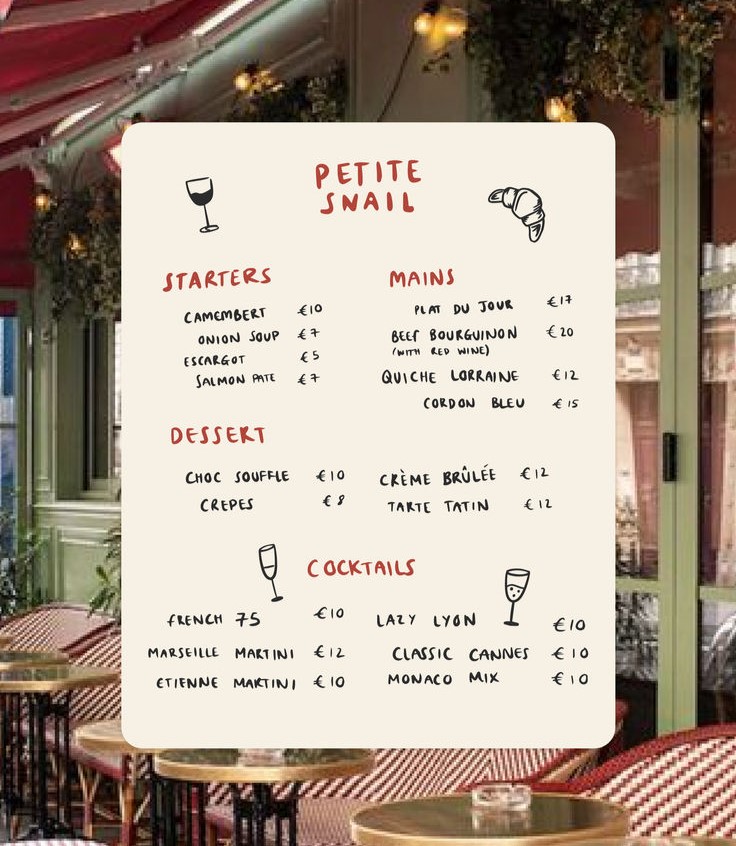 PETITE
SNAIL
STARTERS
CAMEMBERT €10
ONION SOUP €7
ESCARGOT €5
SALMON PATE €7
MAINS
PLAT DU JOUR €17
BEEF BOURGUINON €20
(WITH RED WINE)
QUICHE LORRAINE €12
CORDON BLEU €15
DESSERT
CHOC SOUFFLE €10
CREPES €8
CRÈME BRÛLÉE €12
TARTE TATIN €12
COCKTAILS
FRENCH 75 €10
MARSEILLE MARTINI €12
ETIENNE MARTINI €10
LAZY LYON €10
CLASSIC CANNES €10
MONACO MIX €10